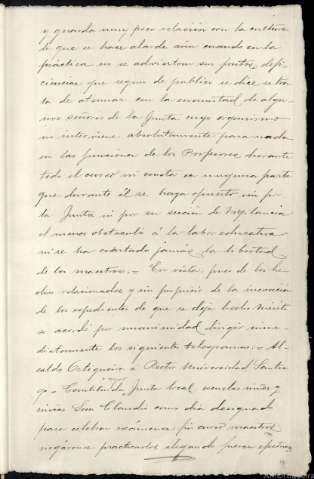 y guarda muy poca relación con la cultura
de que se hace alarde aun cuando en la
práctica no se advierten sus frutos, defi-
ciencias que segun de publico se dice se tra-
ta de atenuar con la enemistad de algu-
nos señores de la Junta cuyo organismo
ni interviene absolutamente para nada
en las funciones de los Profesores durante
todo el curso ni consta en ninguna parte
que durante él se haya opuesto ni por
la Junta ni por su sección de Vigilancia
el menor obstaculo á la labor educativa
ni se ha coartado jamás la libertad
de los maestros.= En vista, pues de los he-
chos relacionados y sin perjuicio de la incoación
de los expedientes de que se deja hecho mérito
se acordó por unanimidad dirigir inme-
diatamente los siguientes telegramas:= Al-
calde Ortigueira a Rector Universidad Santia-
go.= Constituida Junta local escuelas niños y
niñas San Claudio como dia designado
para celebrar exámenes fin curso maestros
negáronse practicarlos alegando fueran